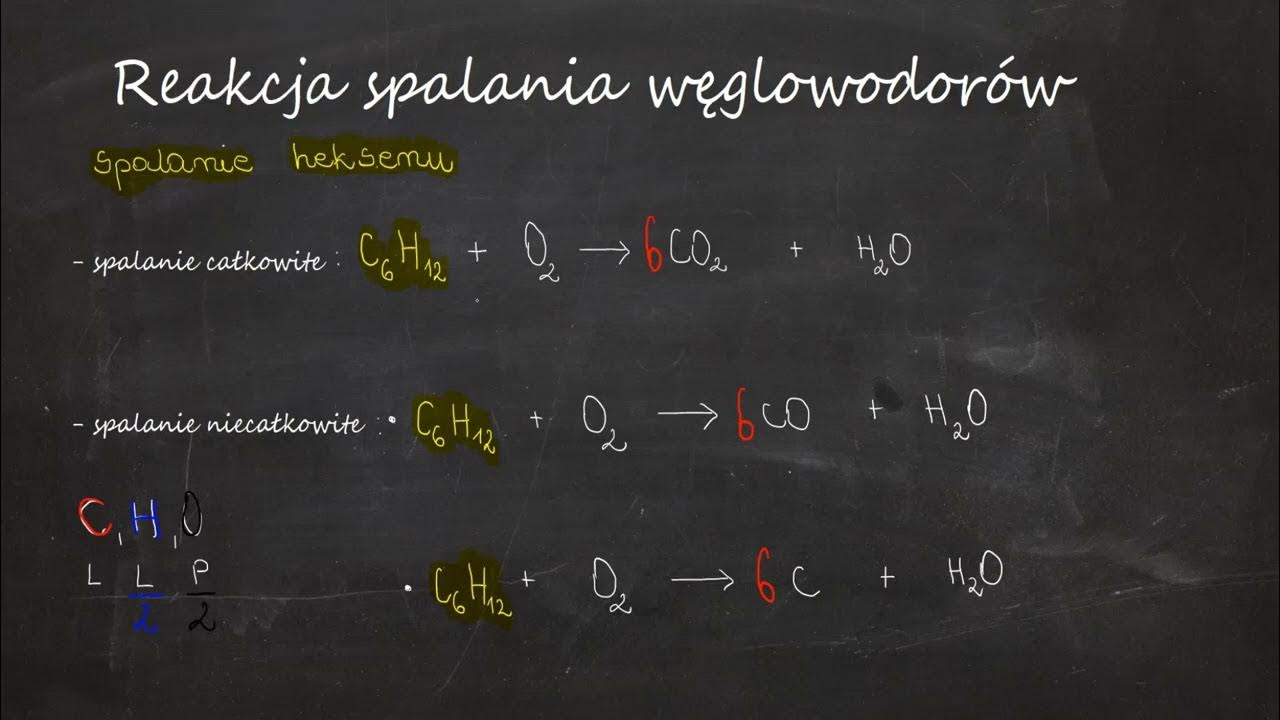 Reakcja spalania węglowodorów
spalanie heksenu
- spalanie całkowite : C₆H₁₂ + O₂ → 6CO₂ + H₂O
- spalanie niecałkowite : • C₆H₁₂ + O₂ → 6CO + H₂O
C, H, O
L L/2 P/2
• C₆H₁₂ + O₂ → 6C + H₂O